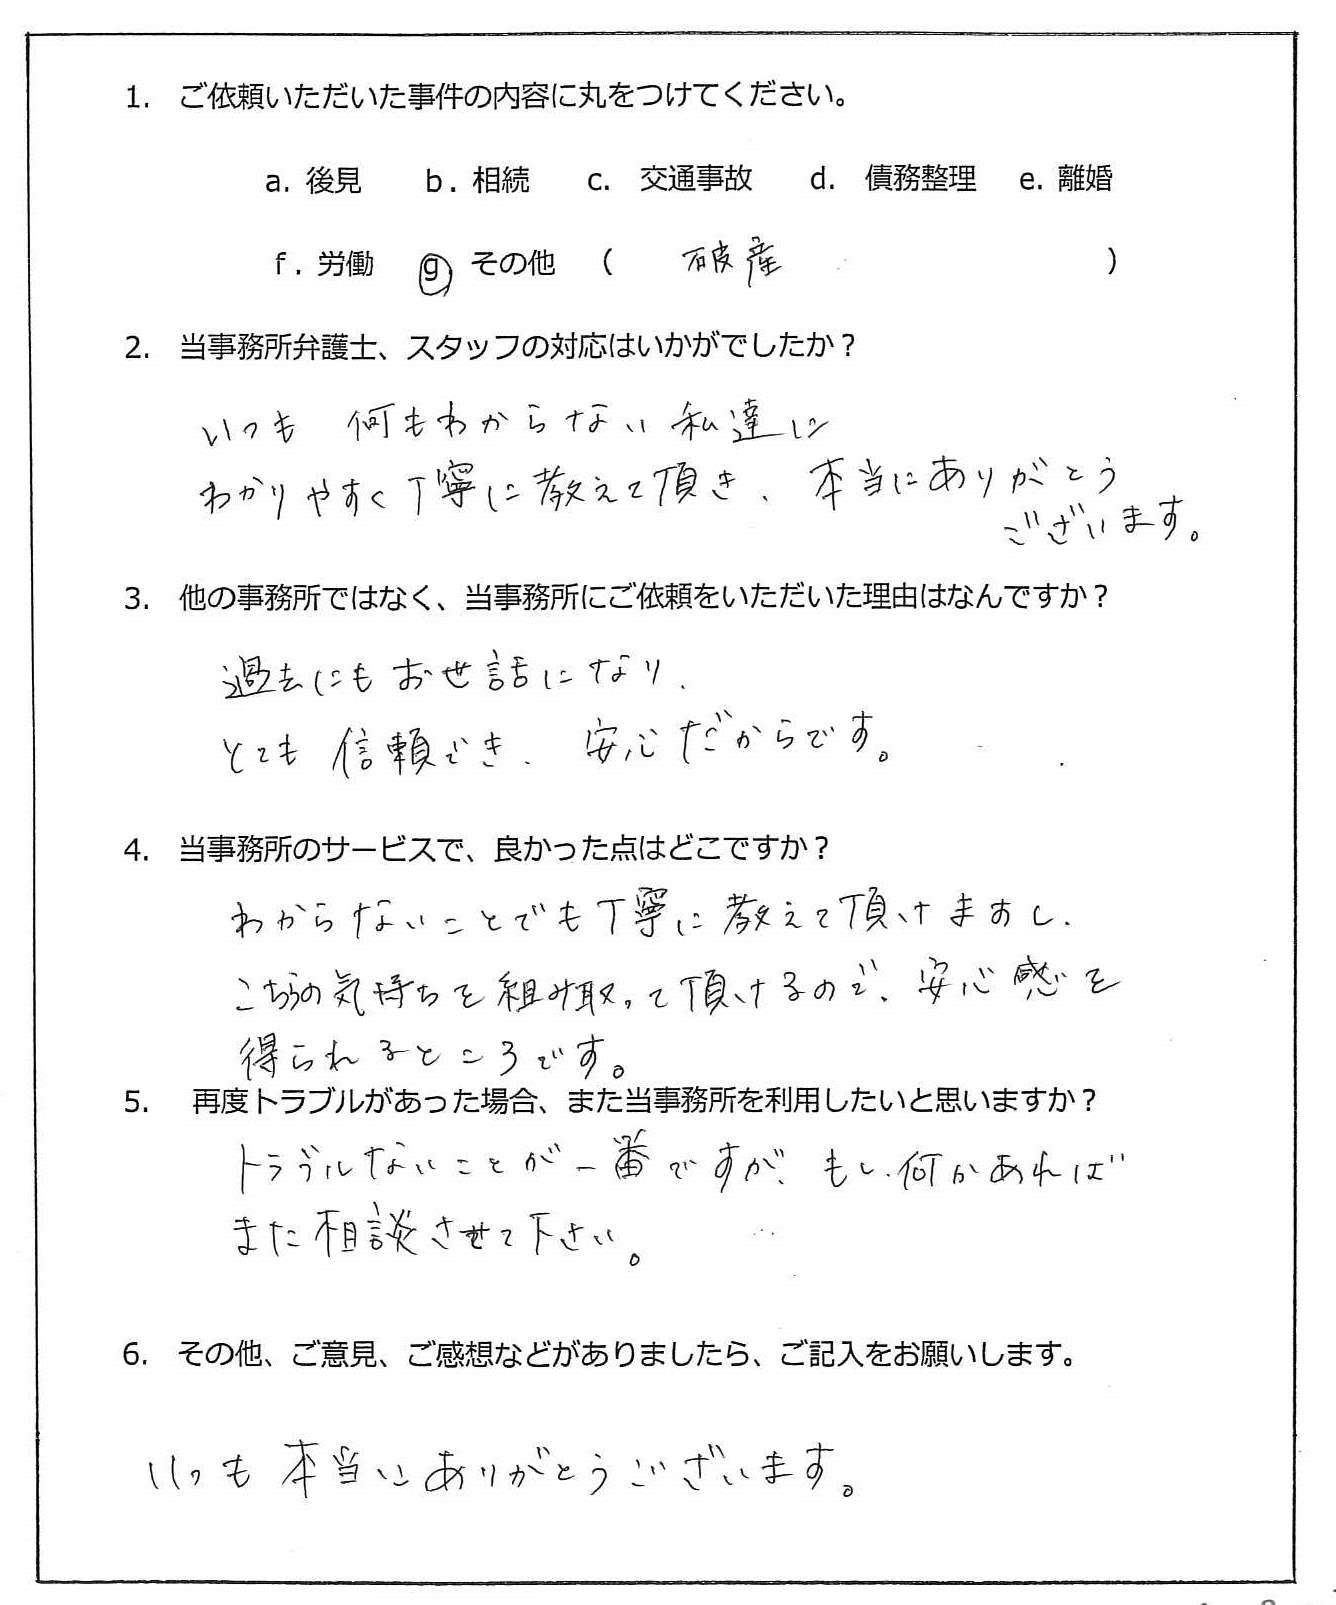 1. ご依頼いただいた事件の内容に丸をつけてください。
a. 後見 b. 相続 c. 交通事故 d. 債務整理 e. 離婚
f. 労働 g その他 ( 破産 )
2. 当事務所弁護士、スタッフの対応はいかがでしたか？
いつも 何もわからない 私達に
わかりやすく丁寧に教えて頂き、本当にありがとう
ございます。
3. 他の事務所ではなく、当事務所にご依頼をいただいた理由はなんですか？
過去にもお世話になり、
とても 信頼でき、安心だからです。
4. 当事務所のサービスで、良かった点はどこですか？
わからないことでも丁寧に教えて頂けますし、
こちらの気持ちを組み取って頂けるので、安心感を
得られるところです。
5. 再度トラブルがあった場合、また当事務所を利用したいと思いますか？
トラブルないことが一番ですが、もし、何かあれば
また相談させて下さい。
6. その他、ご意見、ご感想などがありましたら、ご記入をお願いします。
いつも本当にありがとうございます。